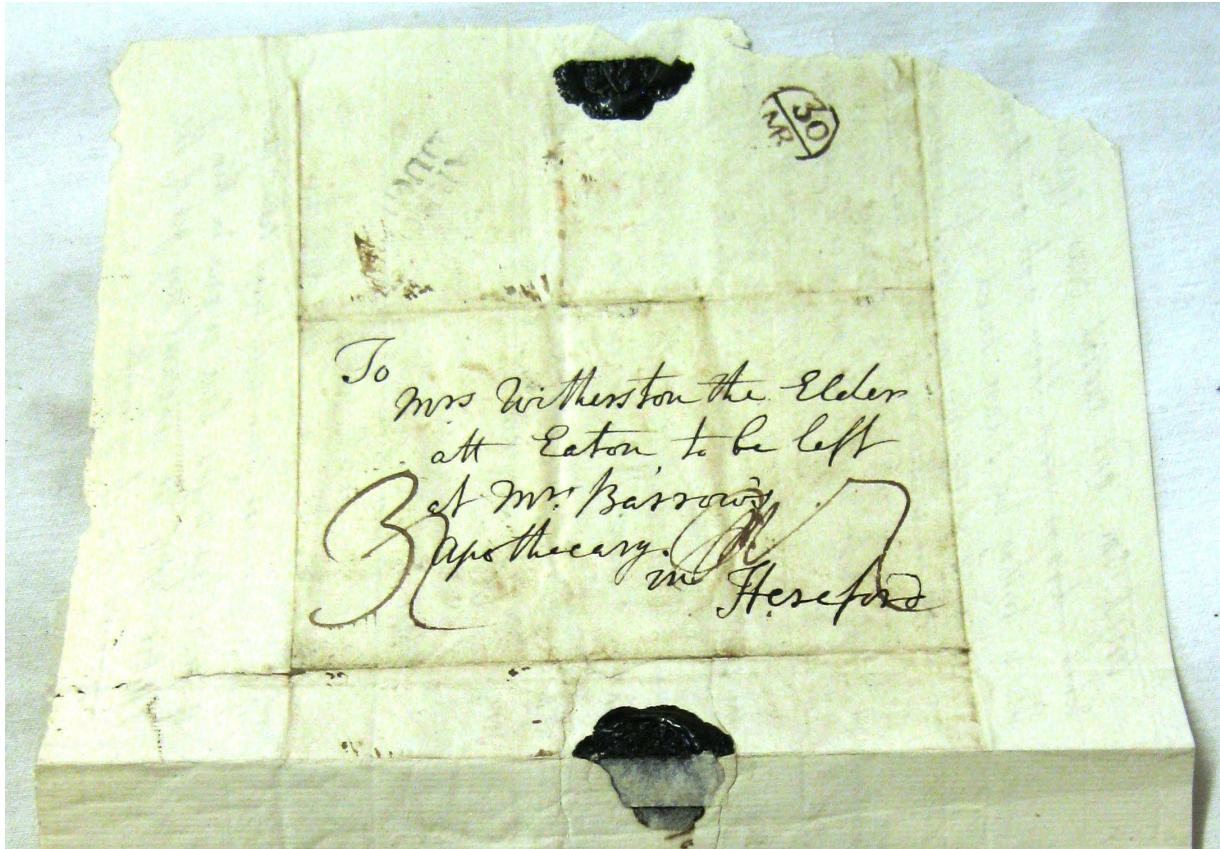 30
MR
To
Mrs Witherston the Elder
att Eaton to be left
at Mrs. Barrow's
Apothecary.
in Hereford